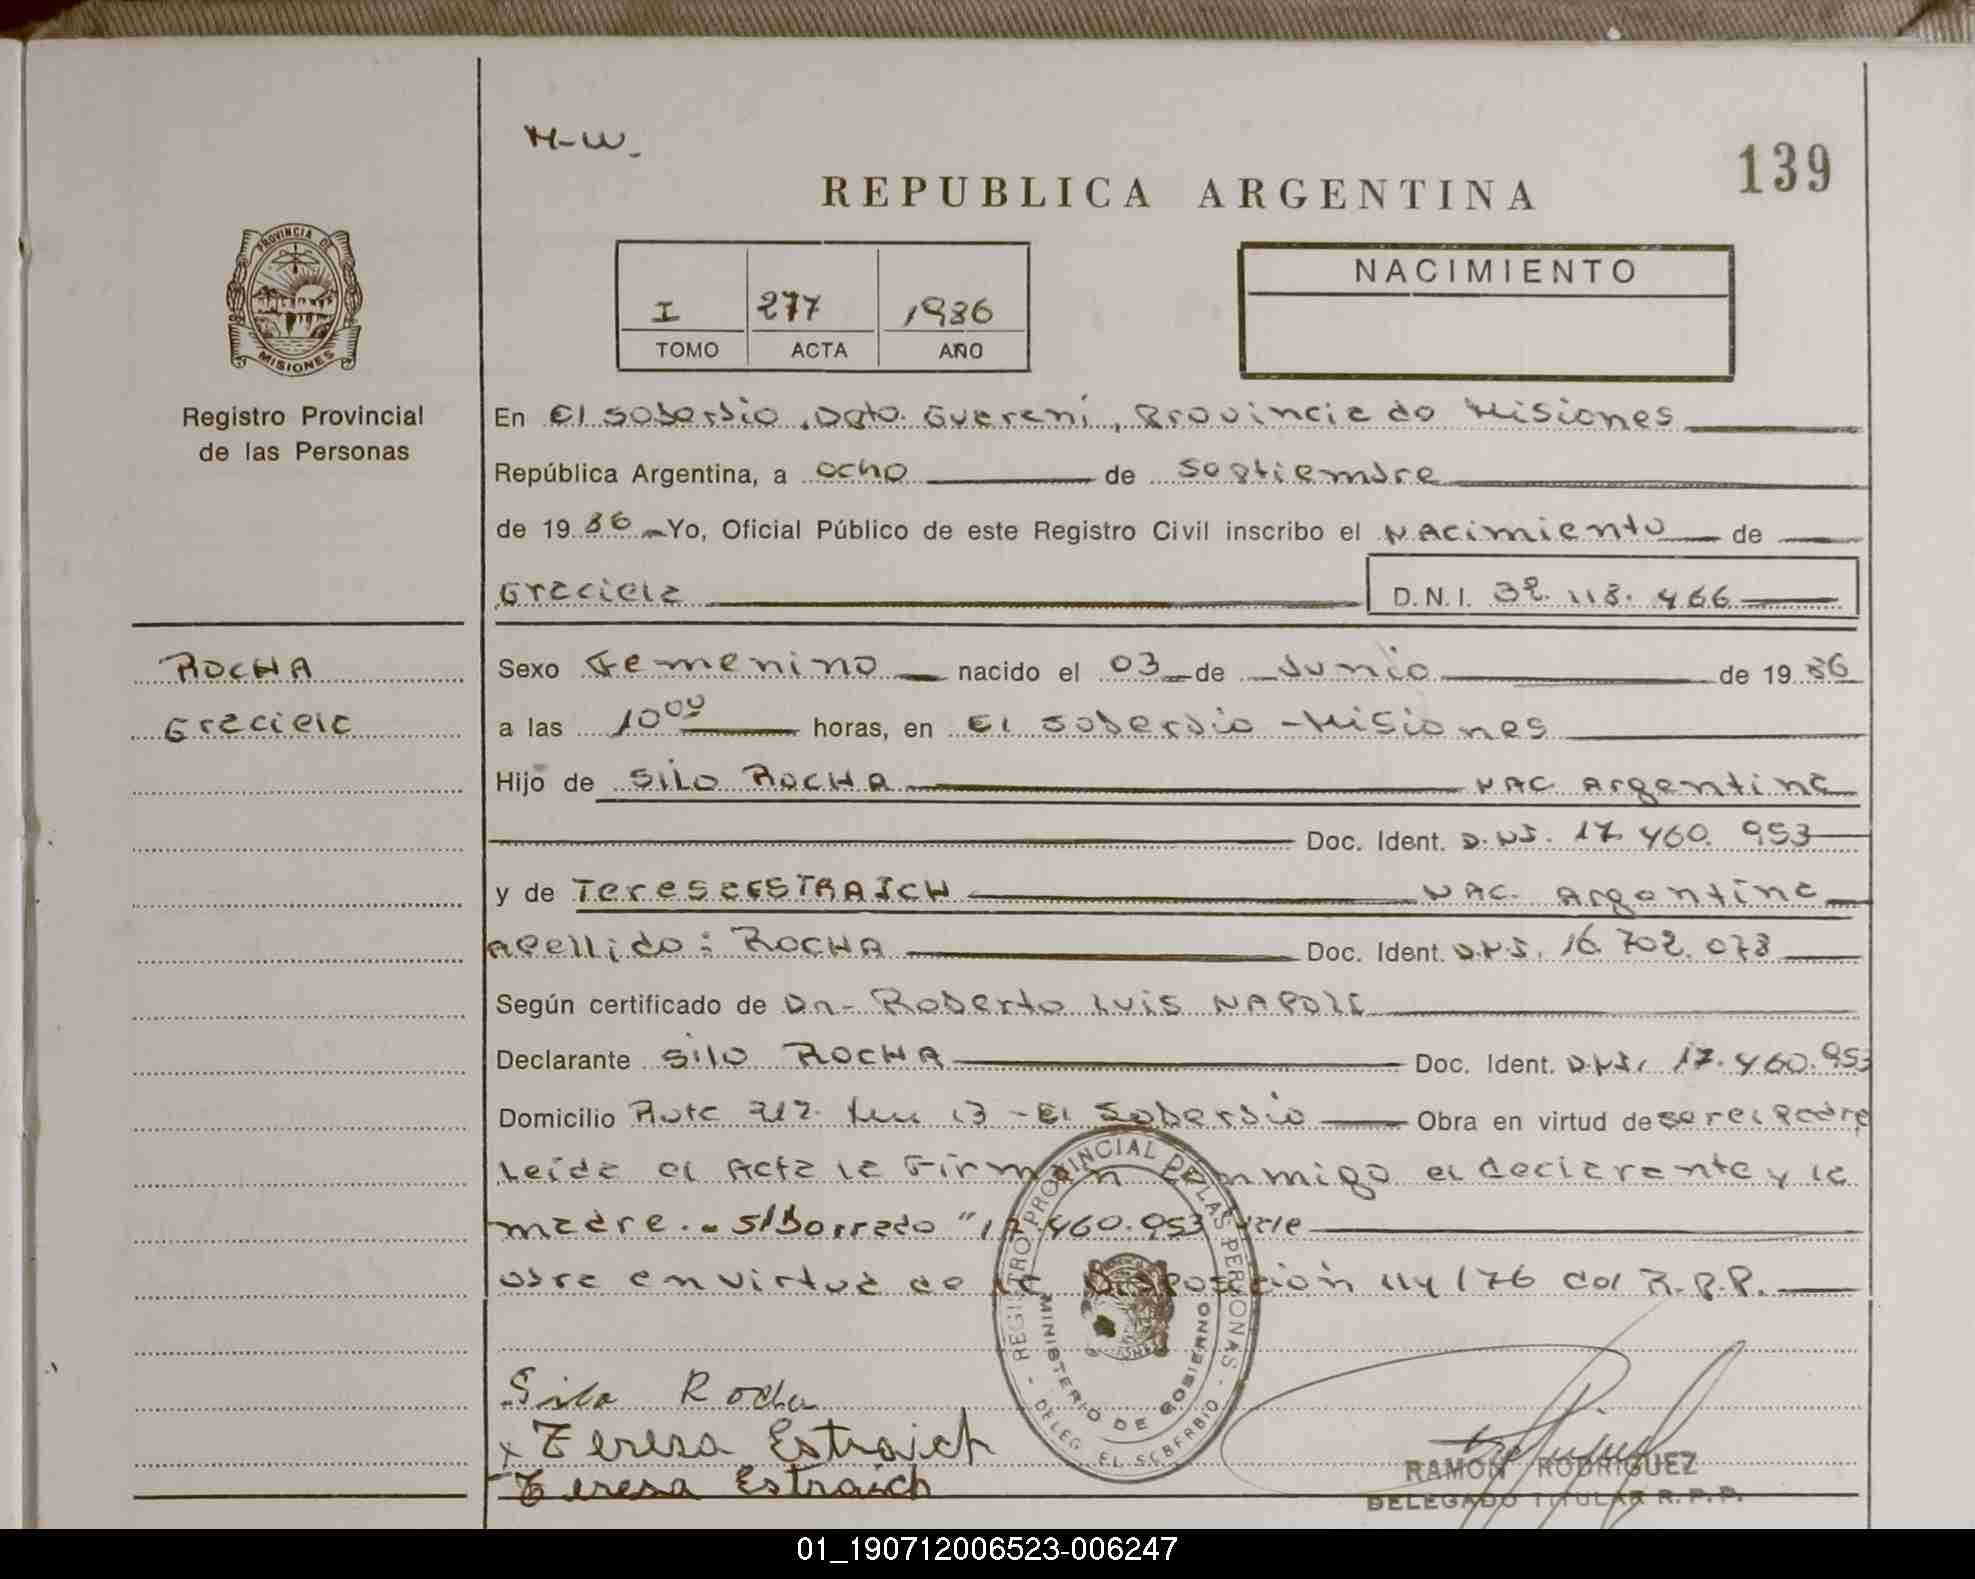 H-W.
139
REPUBLICA ARGENTINA
PROVINCIA DE
MISIONES
I 277 1986
TOMO ACTA AÑO
NACIMIENTO
Registro Provincial
de las Personas
En El Soberbio, Dpto. Guaraní, Provincia de Misiones
República Argentina, a ocho de Septiembre
de 19 86 Yo, Oficial Público de este Registro Civil inscribo el NAcimiento de
Graciela D.N.I. 32.118.466
ROCHA
Graciela
Sexo Femenino nacido el 03 de Junio de 19 86
a las 10 00 horas, en El Soberbio - Misiones
Hijo de SILO ROCHA NAC Argentina
Doc. Ident. D.N.I. 17.460.953
y de Teresa ESTRAICH NAC. Argentina
Apellido: ROCHA Doc. Ident. D.N.I. 16.702.073
Según certificado de Dr- Roberto Luis NAPOLI
Declarante Silo ROCHA Doc. Ident. D.N.I. 17.460.953
Domicilio Ruta 212 km 13 - El Soberbio Obra en virtud de ser el Padre
Leída el Acta la Firman conmigo el declarante y la
madre.- S/Borrado "17.460.953 Vale
obra en virtud de la Disposición 114/76 del R.P.P.
REGISTRO PROVINCIAL DE LAS PERSONAS
MINISTERIO DE GOBIERNO
- DELEG. EL SOBERBIO -
Silo Rocha
x Teresa Estraich
Teresa Estraich
RAMON RODRIGUEZ
DELEGADO TITULAR R.P.P.
01_190712006523-006247